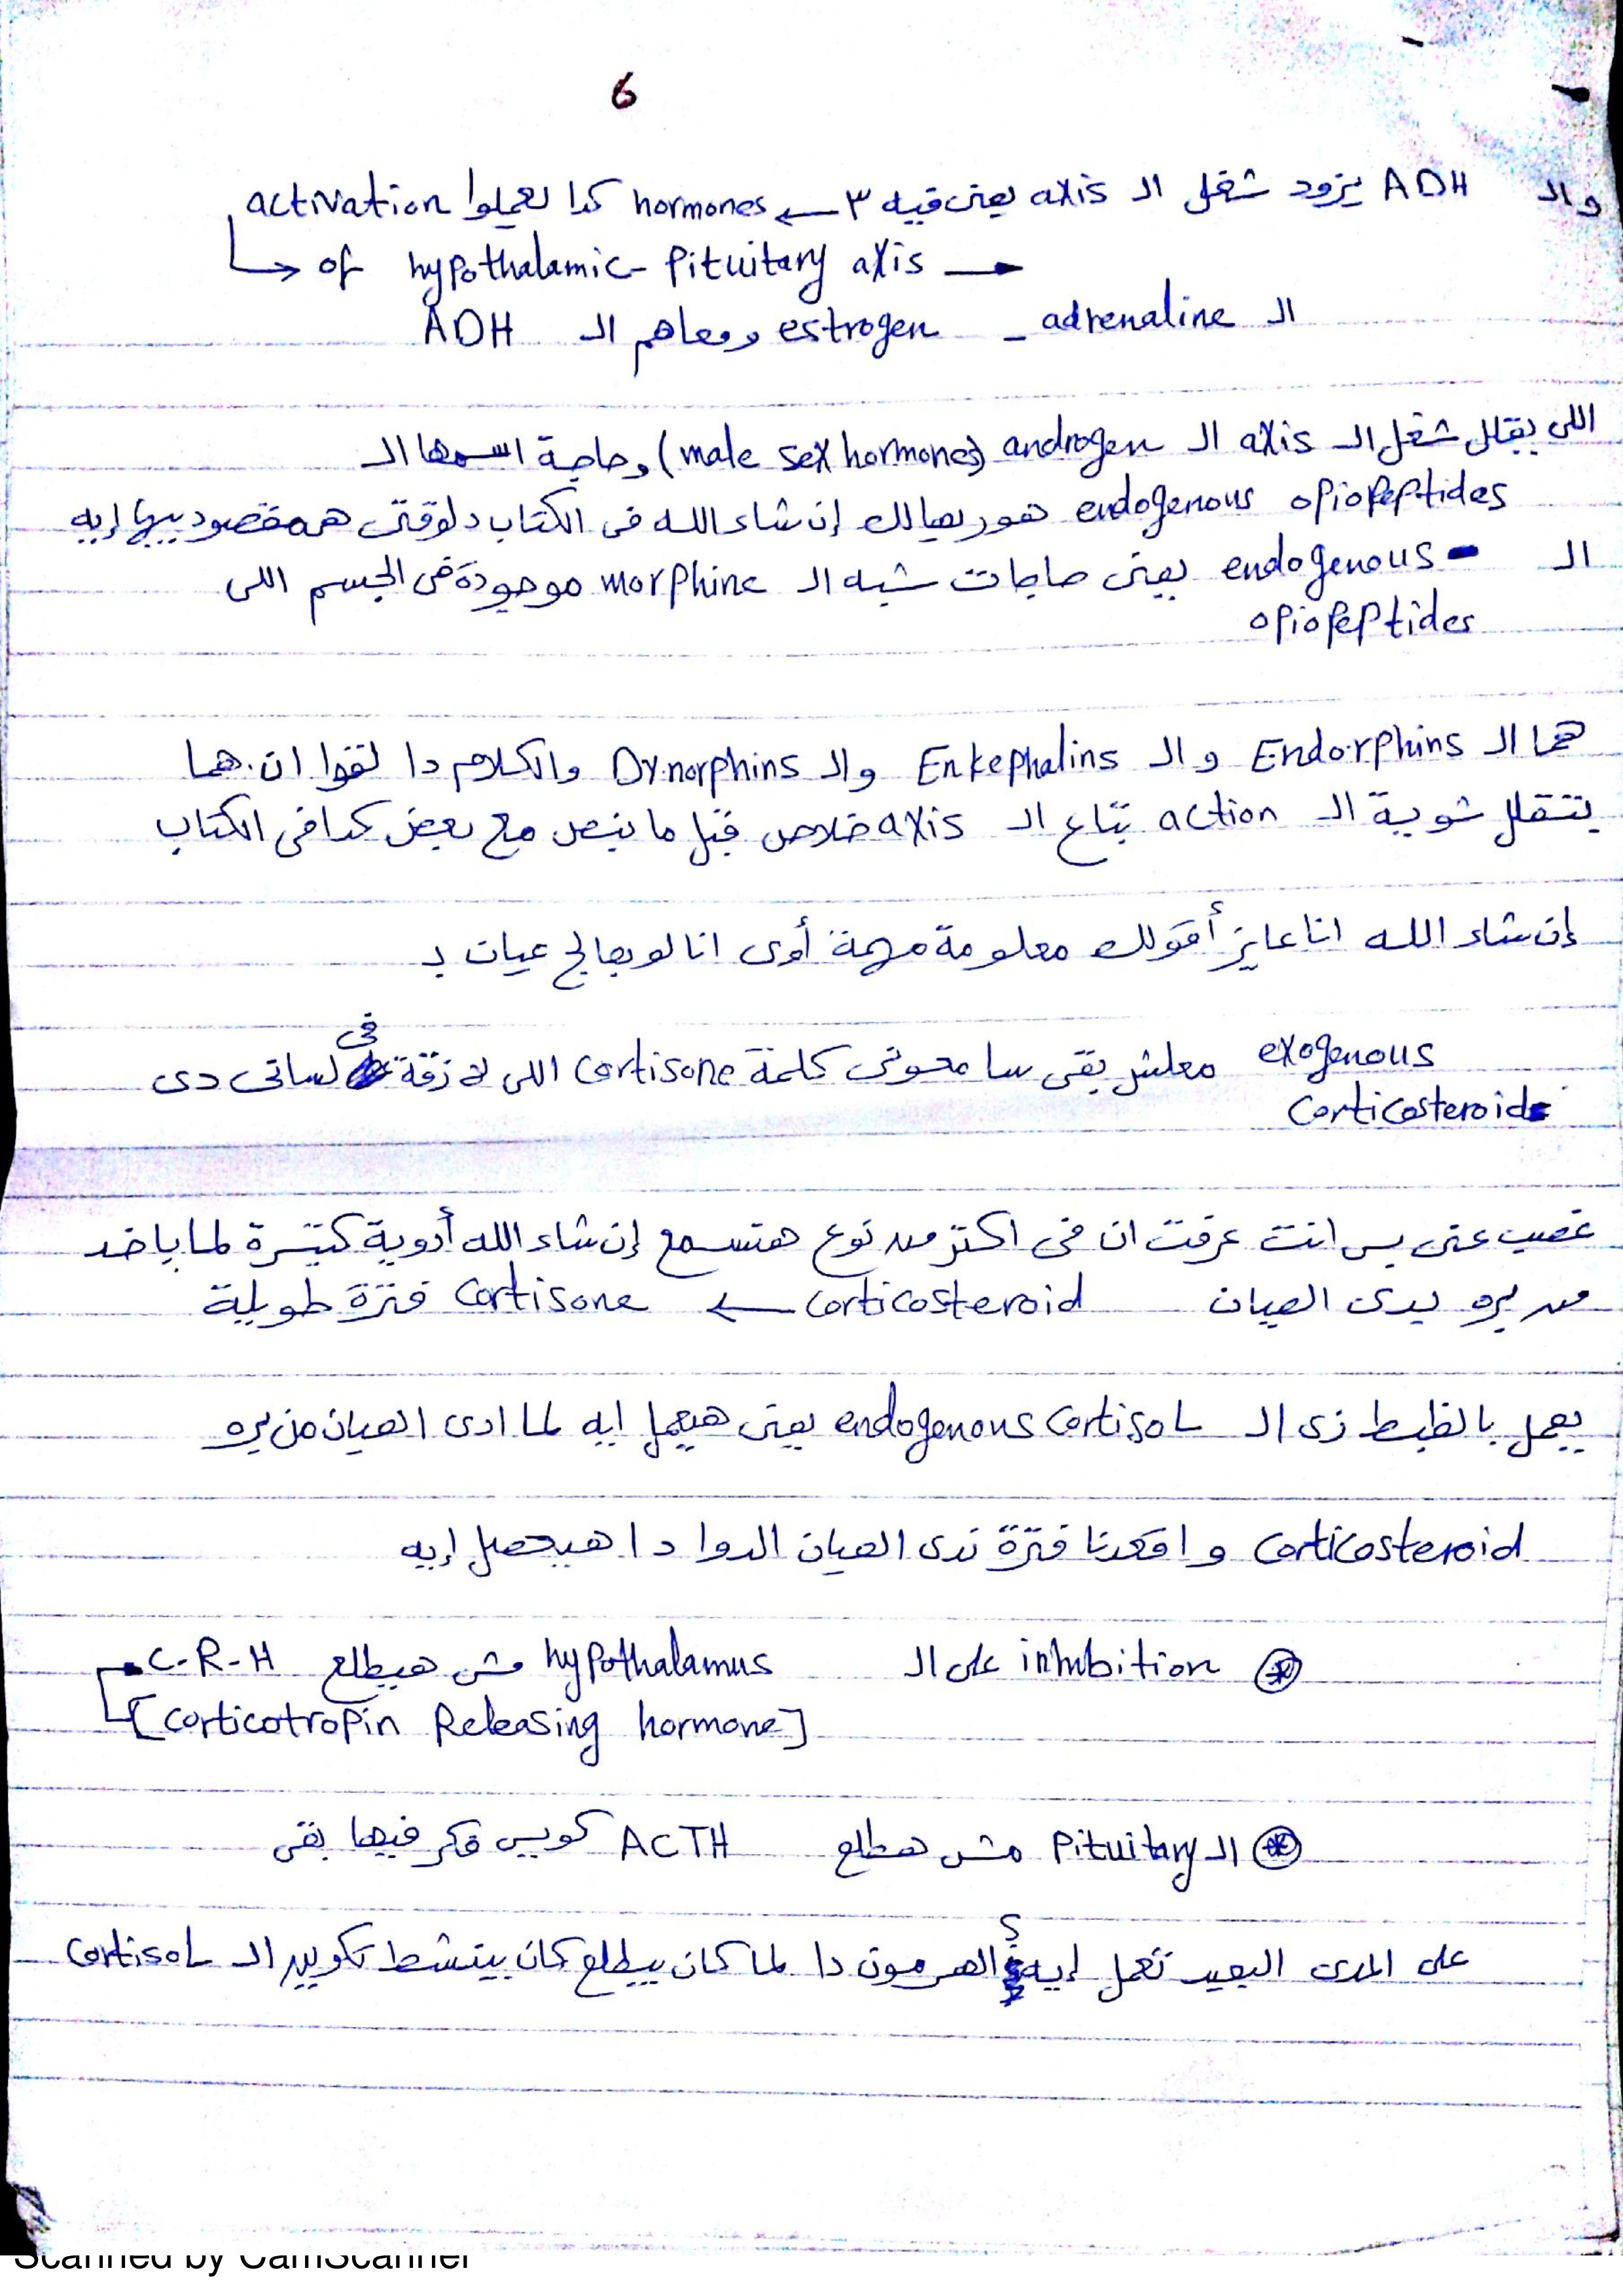 6
والـ ADH يزود شغل الـ axis يعنى فيه ٣ ← hormones كدا يعملوا activation
↳ of hypothalamic- Pituitary axis →
الـ adrenaline _ estrogen ومعاهم الـ ADH
اللى بيقلل شغل الـ axis الـ androgen (male sex hormones) وحاجة اسمها الـ
endogenous opiopeptides هوريهالك إن شاء الله فى الكتاب دلوقتى همه مقصود بيها إيه
الـ endogenous - يعنى حاجات شبه الـ morphine موجودة فى الجسم اللى
opiopeptides
هما الـ Endorphins و الـ Enkephalins والـ Dynorphins والكلام دا لقوا ان هما
بتقلل شوية الـ action بتاع الـ axis خلاص قبل ما نبص مع بعض كدا فى الكتاب
إن شاء الله انا عايز أقولك معلومة مهمة أوى انا لو بعالج عيان بـ
exogenous معلش بقى سامحونى كلمة cortisone اللى لازقة فى لسانى دى
corticosteroid
غصب عنى بس انت عرفت ان فى اكتر من نوع هتسمع إن شاء الله أدوية كتيرة لما ياخد
من بره يدى العيان corticosteroid ← cortisone فترة طويلة
يعمل بالظبط زى الـ endogenous cortisol يعنى هيعمل ايه لما ادى العيان من بره
corticosteroid و اقعدنا فترة ندى العيان الدوا دا هيحصل إيه
⊛ inhibition على الـ hypothalamus مش هيطلع C-R-H
[corticotropin Releasing hormone]
⊛ الـ Pituitary مش هطلع ACTH كويس فكر فيها بقى
على المدى البعيد تعمل إيه؟ الهرمون دا لما كان بيطلع كان بينشط تكوين الـ cortisol
Scanned by CamScanner